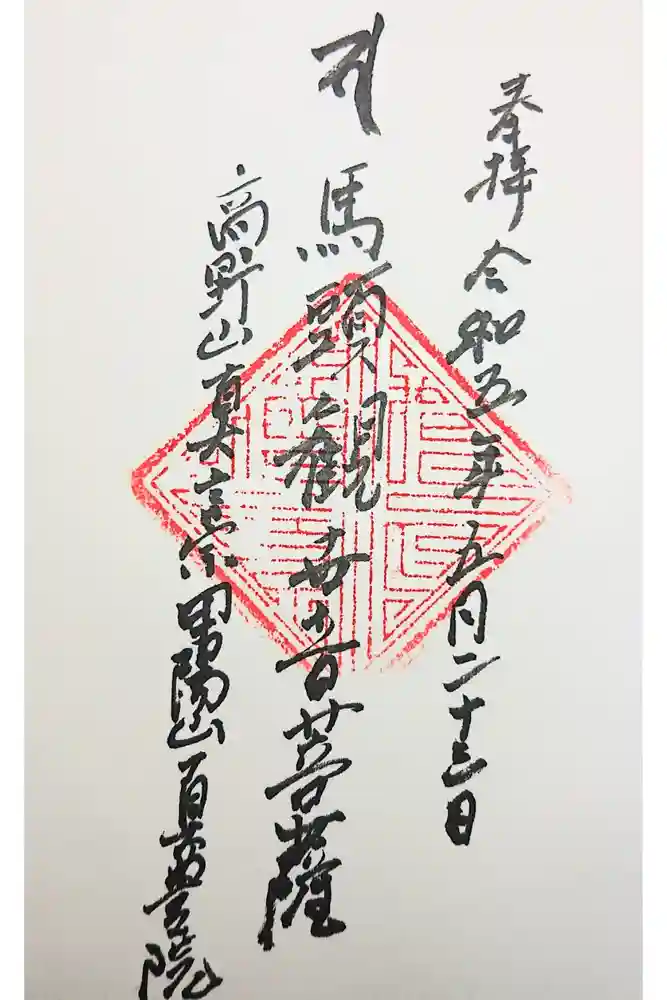 奉拝 令和五年五月二十三日
馬頭觀世音菩薩
高野山真言宗 陽山 院